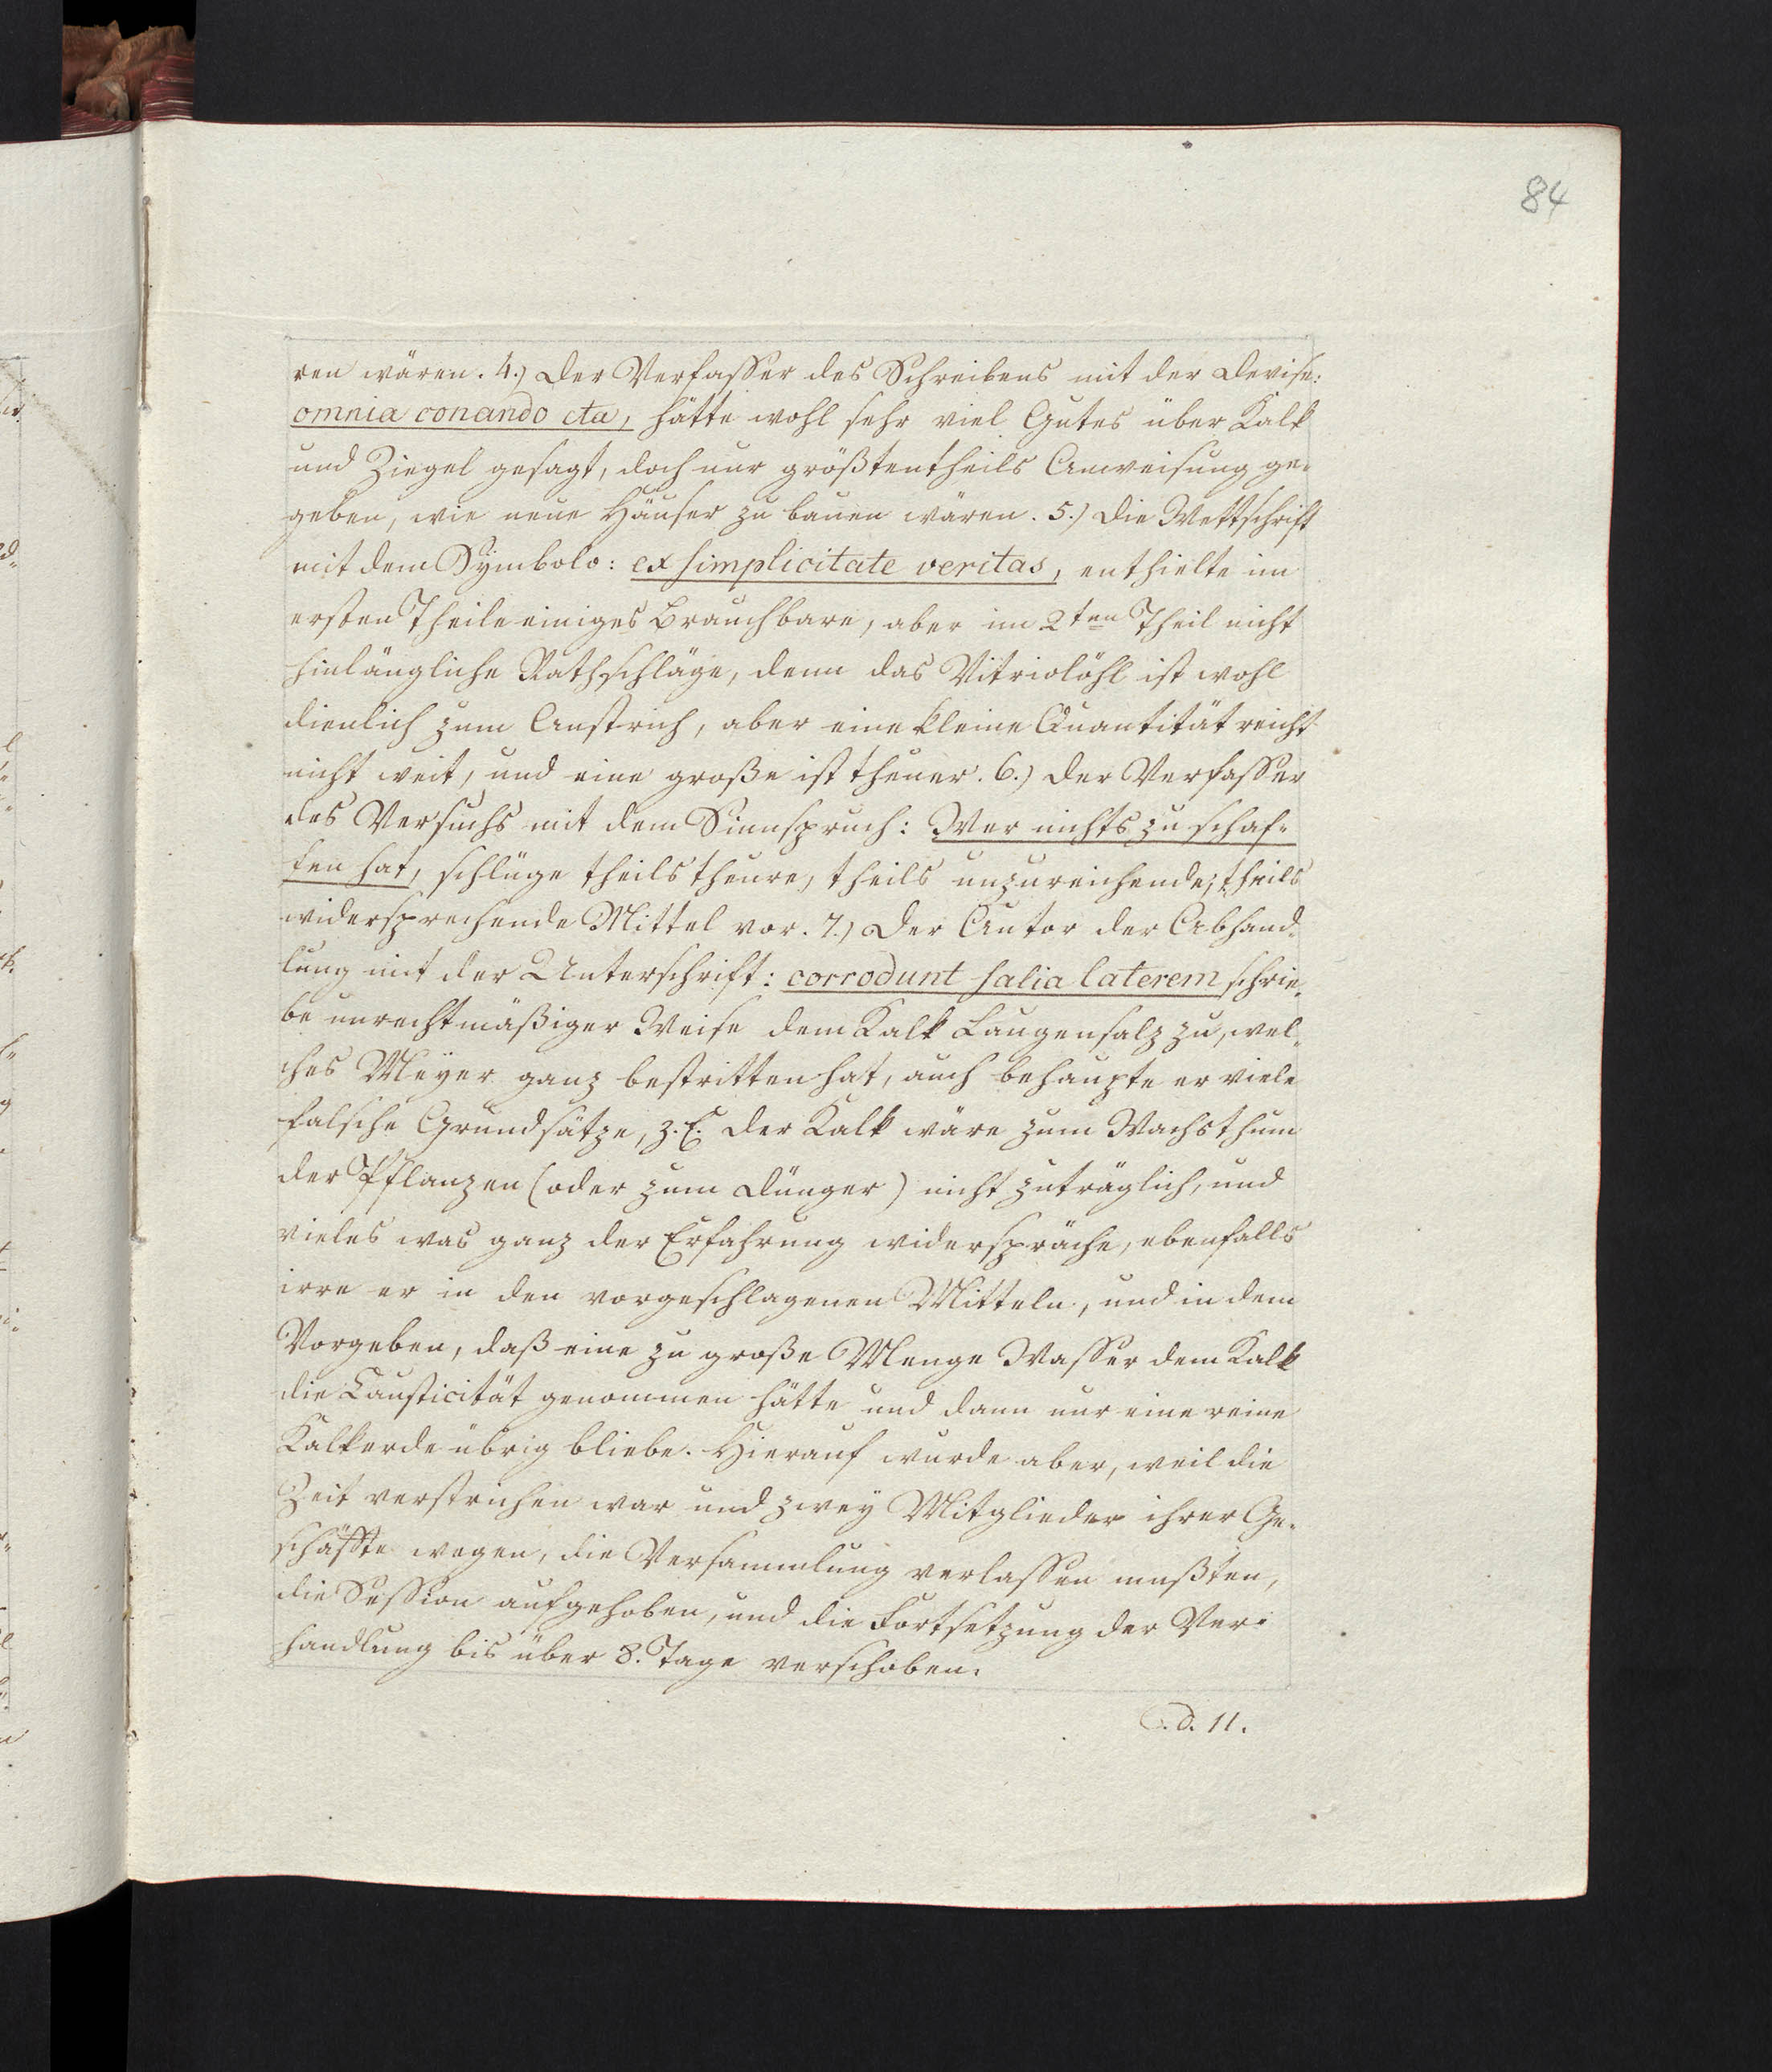 84
ren wären. 4.) Der Verfasser des Schreibens mit der Devise:
omnia conando cta, hätte wohl sehr viel Gutes über Kalk
und Ziegel gesagt, doch nur größtentheils Anweisung ge-
geben, wie neue Häuser zu bauen wären. 5.) Die Wettschrift
mit dem Sÿmbolo: ex simplicitate veritas, enthielte im
ersten Theile einiges Brauchbare, aber im 2ten Theil nicht
hinlängliche Rathschläge, denn das Vitriolöhl ist wohl
dienlich zum Anstrich, aber eine kleine Quantität reicht
nicht weit, und eine große ist theuer. 6.) Der Verfasser
des Versuchs mit dem Sinnspruch: Wer nichts zu schaf-
fen hat, schlüge theils theure, theils unzureichende, theils
widersprechende Mittel vor. 7.) Der Autor der Abhand-
lung mit der Unterschrift: corrodunt salia laterem schrie-
be unrechtmäßiger Weise dem Kalk Laugensalz zu, wel-
ches Meÿer ganz bestritten hat, auch behaupte er viele
falsche Grundsätze, z. E. der Kalk wäre zum Wachsthum
der Pflanzen (oder zum Dünger) nicht zuträglich, und
vieles was ganz der Erfahrung widerspräche, ebenfalls
irre er in den vorgeschlagenen Mitteln, und in dem
Vorgeben, daß eine zu große Menge Wasser dem Kalk
die Causticität genommen hätte und dann nur eine reine
Kalkerde übrig bliebe. Hierauf wurde aber, weil die
Zeit verstrichen war und zweÿ Mitglieder ihrer Ge-
schäffte wegen, die Versammlung verlassen mußten,
die Session aufgehoben, und die Fortsetzung der Ver-
handlung bis über 8. Tage verschoben.
d. 11.